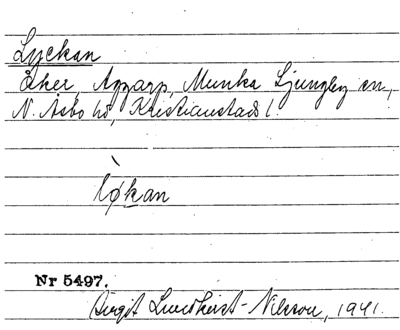 Lyckan
Åker, Agparp, Munka Ljungby sn,
N. Åsbo hd, Kristianstads l.
løkan
Nr 5497.
Birgit Lundkvist-Nilsson, 1941.